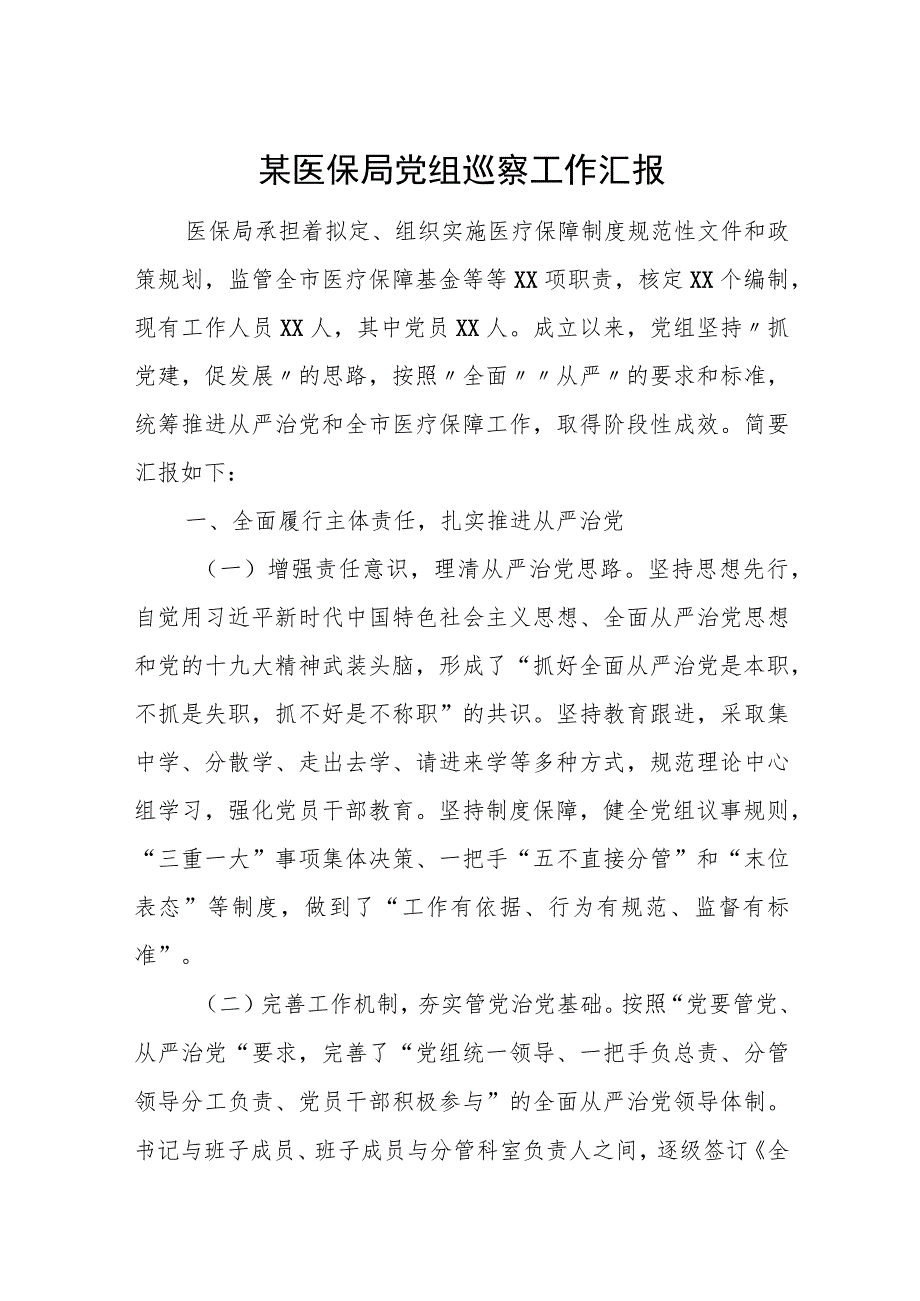 某医保局党组巡察工作汇报
医保局承担着拟定、组织实施医疗保障制度规范性文件和政
策规划，监管全市医疗保障基金等等XX项职责，核定XX个编制，
现有工作人员XX人，其中党员XX人。成立以来，党组坚持〃抓
党建，促发展〃的思路，按照〃全面〃〃从严〃的要求和标准，
统筹推进从严治党和全市医疗保障工作，取得阶段性成效。简要
汇报如下：
一、全面履行主体责任，扎实推进从严治党
（一）增强责任意识，理清从严治党思路。坚持思想先行，
自觉用习近平新时代中国特色社会主义思想、全面从严治党思想
和党的十九大精神武装头脑，形成了“抓好全面从严治党是本职，
不抓是失职，抓不好是不称职”的共识。坚持教育跟进，采取集
中学、分散学、走出去学、请进来学等多种方式，规范理论中心
组学习，强化党员干部教育。坚持制度保障，健全党组议事规则，
“三重一大”事项集体决策、一把手“五不直接分管”和“末位
表态”等制度，做到了“工作有依据、行为有规范、监督有标
准”。
（二）完善工作机制，夯实管党治党基础。按照“党要管党、
从严治党“要求，完善了“党组统一领导、一把手负总责、分管
领导分工负责、党员干部积极参与”的全面从严治党领导体制。
书记与班子成员、班子成员与分管科室负责人之间，逐级签订《全